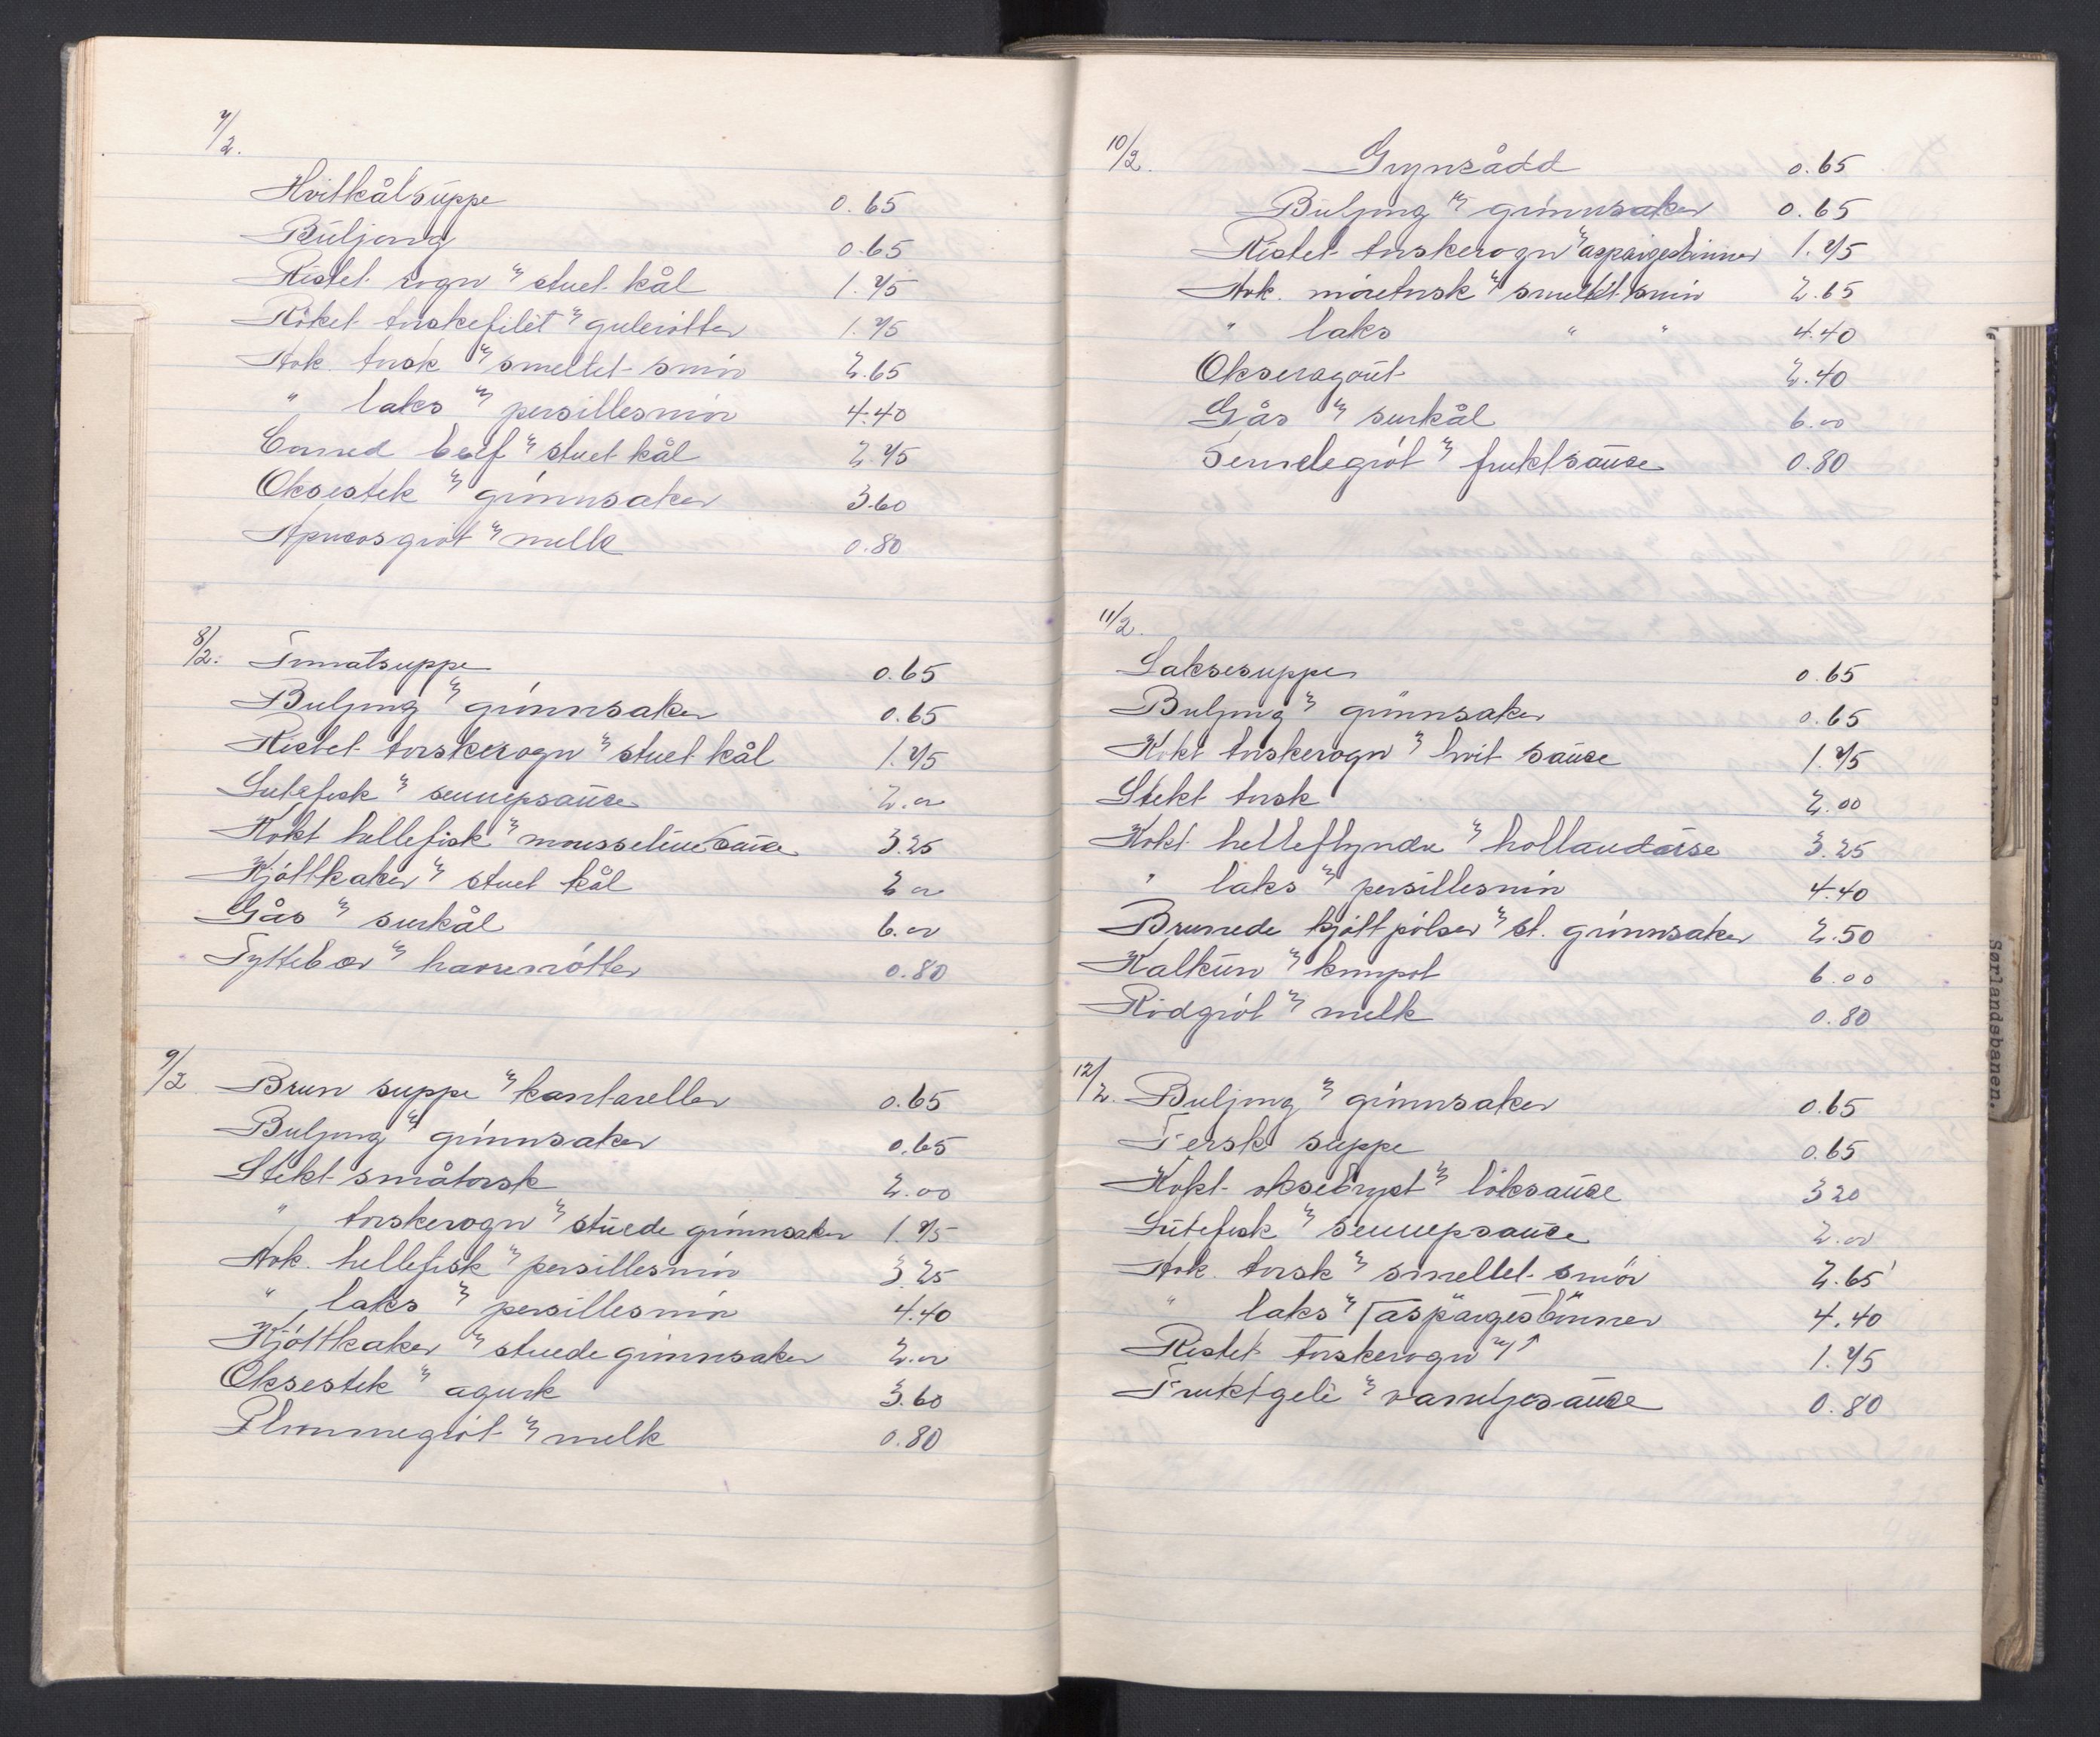 7/2.
Hvitkålsuppe 0.65
Buljong 0.65
Ristet rogn m/ stuet kål 1.75
Röket torskefilèt m/ gulerötter 1.75
Avk. torsk m/ smeltet smör 2.65
" laks m/ persillesmör 4.40
Corned beef m/ stuet kål 2.75
Oksestek m/ grönnsaker 3.60
Apricosgröt m/ melk 0.80
8/2. Tomatsuppe 0.65
Buljong m/ grönnsaker 0.65
Ristet torskerogn m/ stuet kål 1.75
Lutefisk m/ sennepsause 2.00
Kokt hellefisk m/ mousseline sause 3.25
Kjöttkaker m/ stuet kål 2.00
Gås m/ surkål 6.00
Tyttebær m/ havrerötter 0.80
9/2 Brun suppe m/ kantareller 0.65
Buljong m/ grönnsaker 0.65
Stekt småtorsk 2.00
" torskerogn m/ stuede grönnsaker 1.75
Avk. hellefisk m/ persillesmör 3.25
" laks m/ persillesmör 4.40
Kjöttkaker m/ stuede grönnsaker 2.00
Oksestek m/ agurk 3.60
Plommegröt m/ melk 0.80
10/2. Grynsådd 0.65
Buljong m/ grönnsaker 0.65
Ristet torskerogn m/ aspargesbönner 1.75
Avk. möretorsk m/ smeltet smör 2.65
" laks " " 4.40
Okseragout 2.40
Gås m/ surkål 6.00
Semulegröt m/ fruktsause 0.80
11/2.
Laksesuppe 0.65
Buljong m/ grönnsaker 0.65
Kokt torskerogn m/ hvit sause 1.75
Stekt torsk 2.00
Kokt helleflyndre m/ hollandaise 3.25
" laks m/ persillesmör 4.40
Brunede kjöttpölser m/ st. grönnsaker 2.50
Kalkun m/ kompot 6.00
Rödgröt m/ melk 0.80
12/2. Buljong m/ grönnsaker 0.65
Fersk suppe 0.65
Kokt oksebryst m/ löksause 3 20
Lutefisk m/ sennepsause 2.00
Avk. torsk m/ smeltet smör 2.65
" laks m/ aspargesbönner 4.40
Ristet torskerogn m/ 1.75
Fruktgelè m/ vaniljesause 0.80
Sørlandsbanen.